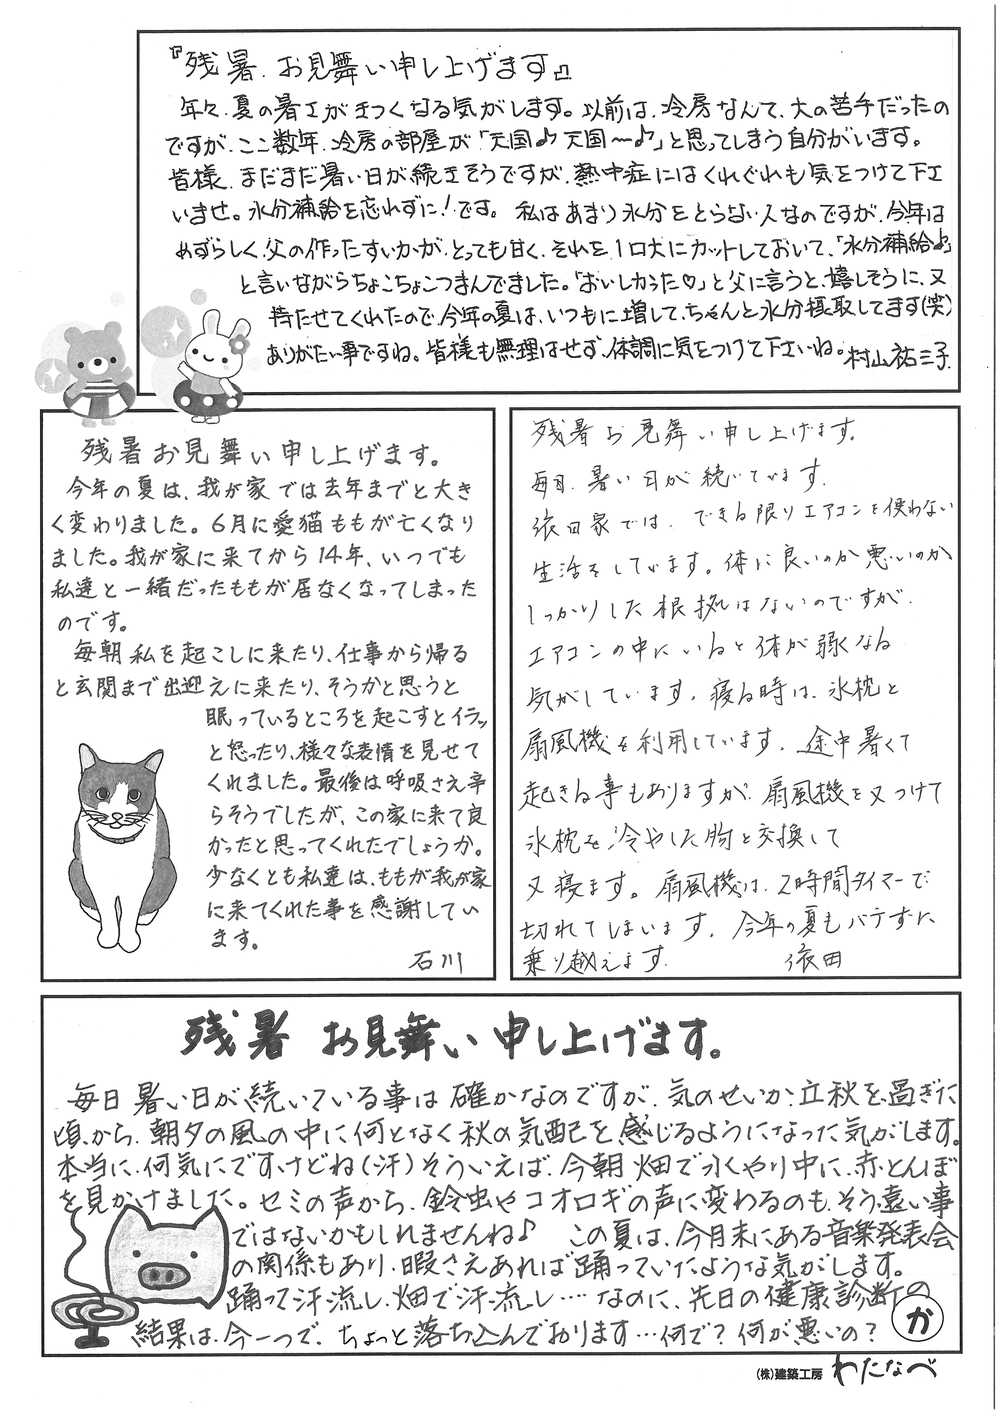 『残暑.お見舞い申し上げます』
年々、夏の暑さがきつくなる気がします。以前は、冷房なんて、大の苦手だったの
ですが、ここ数年、冷房の部屋が「天国♪天国〜♪」と思ってしまう自分がいます。
皆様、まだまだ暑い日が続きそうですが、熱中症にはくれぐれも気をつけて下さ
いませ。水分補給を忘れずに!です。私はあまり水分をとらない人なのですが、今年は
めずらしく、父の作ったすいかが、とっても甘く、それを、1口大にカットしておいて、「水分補給♪」
と言いながらちょこちょこつまんでました。「おいしかった♡」と父に言うと、嬉しそうに、又
持たせてくれたので、今年の夏は、いつもに増して、ちゃんと水分摂取してます(笑)
ありがたい事ですね。皆様も無理はせず、体調に気をつけて下さいね。村山祐三子
残暑お見舞い申し上げます。
今年の夏は、我が家では去年までと大き
く変わりました。6月に愛猫ももが亡くなり
ました。我が家に来てから14年、いつでも
私達と一緒だったももが居なくなってしまった
のです。
毎朝私を起こしに来たり、仕事から帰る
と玄関まで出迎えに来たり、そうかと思うと
眠っているところを起こすとイラッ
と怒ったり、様々な表情を見せて
くれました。最後は呼吸さえ辛
らそうでしたが、この家に来て良
かったと思ってくれたでしょうか。
少なくとも私達は、ももが我が家
に来てくれた事を感謝してい
ます。
石川
残暑お見舞い申し上げます。
毎日、暑い日が続いています。
依田家では、できる限りエアコンを使わない
生活をしています。体に良いのか悪いのか、
しっかりした根拠はないのですが、
エアコンの中にいると体が弱くなる
気がしています。寝る時は、氷枕と
扇風機を利用しています。途中暑くて
起きる事もありますが、扇風機を又つけて
氷枕を冷やした物と交換して
又寝ます。扇風機は、2時間タイマーで
切れてしまいます。今年の夏もバテずに
乗り越えます。 依田
残暑 お見舞い申し上げます。
毎日暑い日が続いている事は確かなのですが、気のせいか、立秋を過ぎた
頃から、朝夕の風の中に何となく秋の気配を感じるようになった気がします。
本当に、何気にですけどね(汗)そういえば、今朝畑で水やり中に、赤とんぼ
を見かけました。セミの声から、鈴虫やコオロギの声に変わるのも、そう遠い事
ではないかもしれませんね♪ この夏は、今月末にある音楽発表会
の関係もあり、暇さえあれば踊っていたような気がします。
踊って汗流し、畑で汗流し…. なのに、先日の健康診断の
結果は、今一つで、ちょっと落ち込んでおります…何で?何が悪いの? か
(株)建築工房 わたなべ